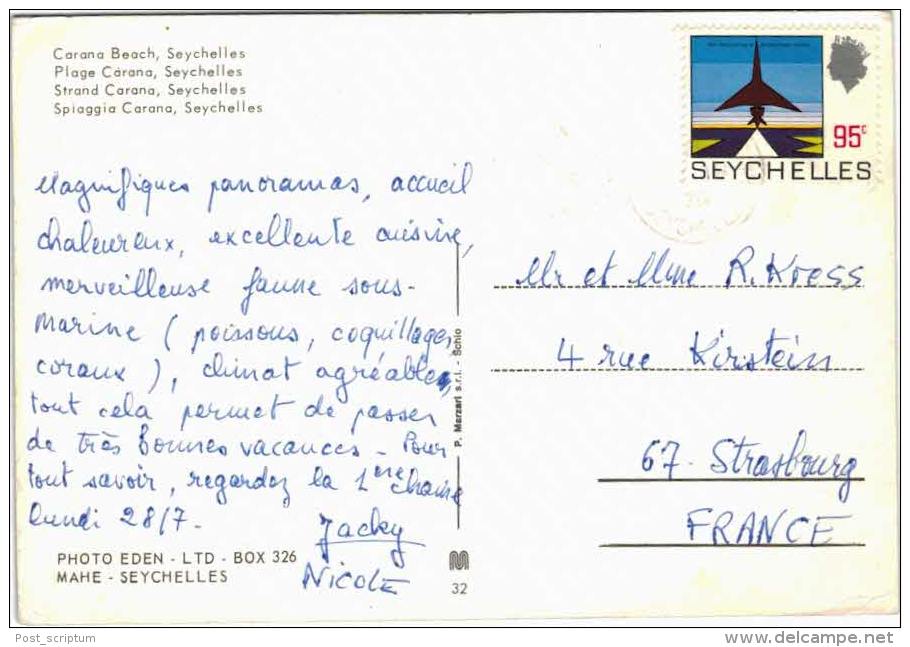 Carana Beach, Seychelles
Plage Carana, Seychelles
Strand Carana, Seychelles
Spiaggia Carana, Seychelles
95c
SEYCHELLES
Magnifiques panoramas, accueil
chaleureux, excellente cuisine,
merveilleuse faune sous-
marine (poissons, coquillages,
coraux), climat agréable,
tout cela permet de passer
de très bonnes vacances - Pour
tout savoir, regardez la 1ère chaine
lundi 28/7.
Jacky
Nicole
Mr et Mme R. Kress
4 rue Kirstein
67 - Strasbourg
FRANCE
P. Marzari s.r.l. - Schio
PHOTO EDEN - LTD - BOX 326
MAHE - SEYCHELLES
32
Post_scriptum
www.delcampe.net